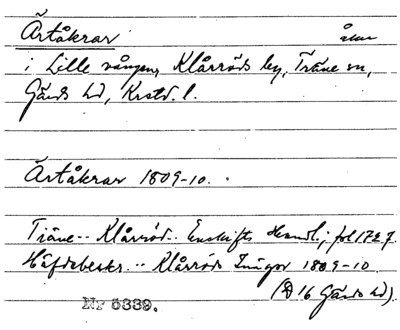 Ärtåkrar åker
i Lille vången, Klårröds by, Träne sn,
Gärds hd, Krstd. l.
Ärtåkrar 1809-10.
Träne-- Klårröd-- Enskifts Handl.; fol 172 f.
Häfdebeskr. -- Klårröds Inägor 1809-10
(D 16 Gärds hd)
Nr 5339.